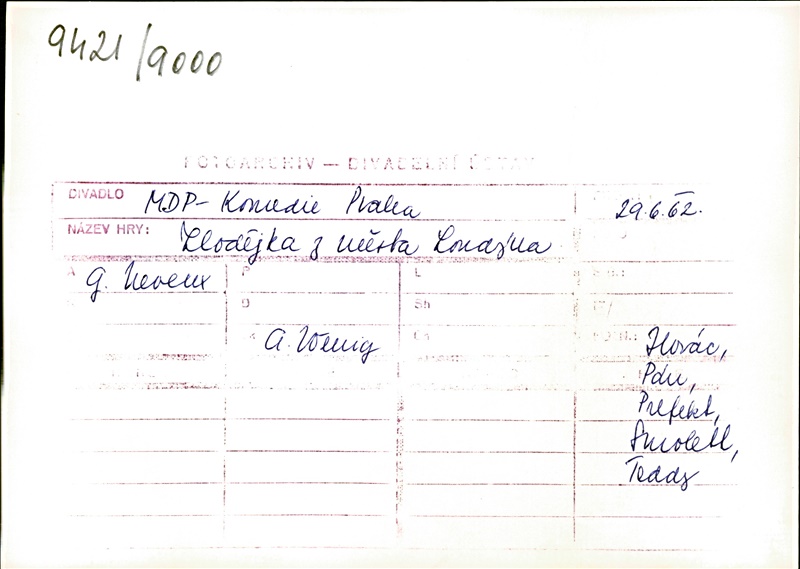 9421/9000
FOTOARCHIV — DIVADELNÍ ÚSTAV
DIVADLO MDP - Komedie Praha 29.6.62.
NÁZEV HRY: Zlodějka z města Londýna
A G. Neveux P L
D Sh
A. Wenig
Hlovác,
Pán,
Prefekt,
Smolett,
Teddy